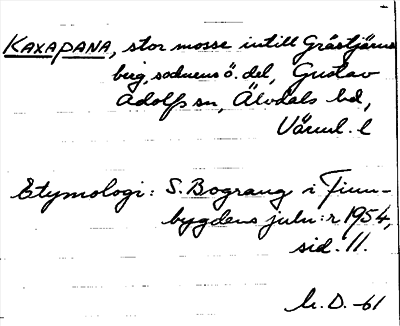 KAXAPANA, stor mosse intill Gråstjärns
berg, socknens ö. del, Gustav
Adolfs sn, Älvdals hd,
Värml. l
Etymologi: S. Bograng i Finn-
bygdens julnr 1954,
sid. 11.
M. D. -61